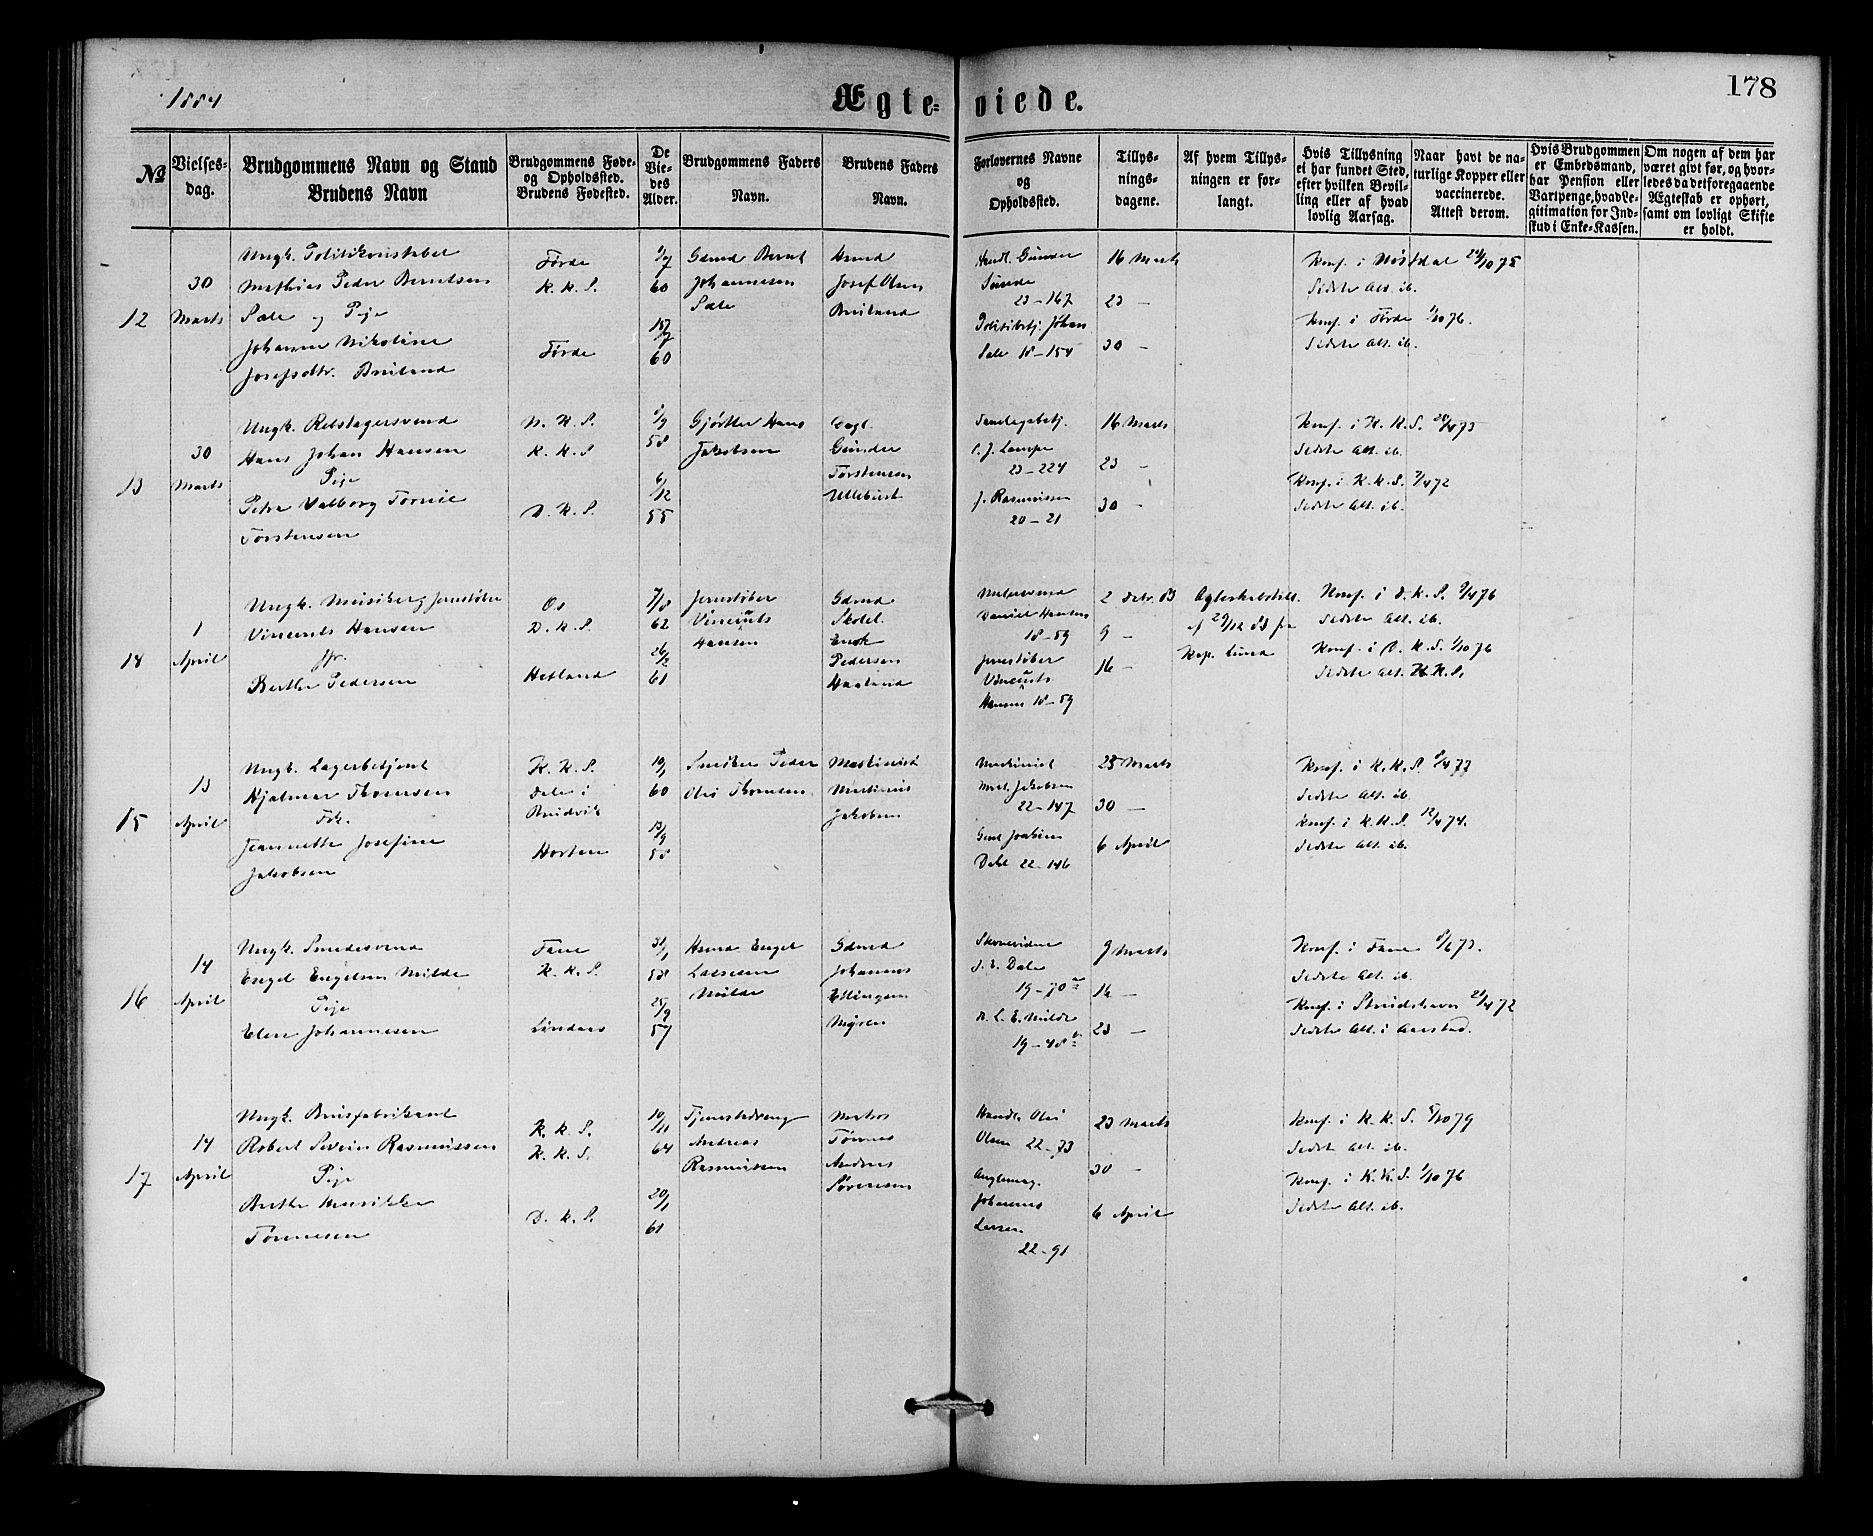 1884
Ægte=viede.
178
№
Vielses-
dag.
Brudgommens Navn og Stand
Brudens Navn
Brudgommens Føde-
og Opholdssted.
Brudens Fødested.
De
Vie-
des
Alder.
Brudgommens Faders
Navn.
Brudens Faders
Navn.
Forlovernes Navne
og
Opholdssted.
Tillys-
nings-
dagene.
Af hvem Tillys-
ningen er for-
langt.
Hvis Tillysning
ei har fundet Sted,
efter hvilken Bevil-
ling eller af hvad
lovlig Aarsag.
Naar havt de na-
turlige Kopper eller
vaccinerede.
Attest derom.
Hvis Brudgommen
er Embedsmand,
har Pension eller
Vartpenge, hvad Le-
gitimation for Ind-
skud i Enke-Kassen.
Om nogen af dem har
været givt før, og hvor-
ledes da det foregaaende
Ægteskab er ophørt,
samt om lovligt Skifte
er holdt.
12
30
Marts
Ungk. Politikonstabel
Mathias Peder Berntsen
Sæle og Pige
Johanne Nikoline
Josefsdtr. Bruland
Førde
K. K. S.
Førde
60
60
Gdmd Bernt
Johannesen
Sæle
Hsmd
Josef Olsen
Bruland
Handl. Gunder
Sunde
23 – 167
Politibtj. Johan
Sæle 18 – 154
16 Marts
23 –
30 –
Konf. i 75
Sidste Alt. ib.
Konf. i Førde 1/10 76.
Sidste Alt. ib.
13
30
Marts
Ungk. Rebslagersvend
Hans Johan Hansen
Pige
Petra Valborg
Torstensen
N. K. S.
K. K. S
D. K. S.
58
6/12
55
Gjørtler Hans
Jakobsen
Gunder
Torstensen
C. J. Lampe
23 – 224
J. Rasmussen
20 – 21
16 Marts
23 –
30 –
Konf. i K. K. S. 20/4 73
Sidste Alt. ib.
Konf. i K. K. S. 7/4 72
Sidste Alt. ib.
14
1
April
Ungk. Musiker og Jernstøber
Vincents Hansen
Jfr.
Berthe Pedersen
Os
D. K. S.
Hetland
7/8
62
26/2
61
Jernstøber
Vincents
Hansen
Gdmd
Enok
Pedersen
Haaland
Malersvend
Daniel Hansen
18 – 59
Jernstøber
Vincents
Hansen 18 – 59
2 Febr. 83
9 –
16 –
af 29/12 83 fra
Kap. Lund
Konf. i D. K. S. 9/4 76
Sidste Alt. ib.
Konf. i D. K. S. 1/10 76
Sidste Alt. K. K. S.
15
13
April
Ungk. Lagerbetjent
Hjalmar Thomsen
Frk.
Jeannette Josefine
Jakobsen
K. K. S.
Dale i
Brudvik
Horten
10/1
60
13/9
58
Snedker Peder
Olai Thomsen
Maskinist
Martinius
Jakobsen
Maskinist
Mart. Jakobsen
22 – 147
Joakim
Dahl 22 – 146
23 Marts
30 –
6 April
Konf. i K. K. S. 73
Sidste Alt. ib.
Konf. i K. K. S. 12/4 74.
Sidste Alt. ib.
16
14
April
Ungk. Smedesvend
Engel Engelsen Milde
Pige
Elen Johannesen
Fane
K. K. S.
Lindaas
31/1
58
25/9
57
Hsmd Engel
Larsen
Milde
Gdmd
Johannes
Ellingsen
Mjøsen
J. E. Dale
19 – 70
E. Milde
19 – 48
9 Marts
16 –
23 –
Konf. i Fane 8/6 73.
Sidste Alt. ib.
Konf. i Strudshavn 21/4 72
Sidste Alt. i Aarstad.
17
14
April
Ungk. Brusfabrikant
Robert Severin Rasmussen
Pige
Berthe Henrikke
Tønnesen
K. K. S.
K. K. S.
D. K. S.
10/11
64
20/1
61
Tjenestedreng
Andreas
Rasmussen
Matros
Tønnes
Andreas
Sørensen
Handl. Olai
Olsen 22 – 73
Johannes
Larsen
22 – 91
23 Marts
30 –
6 April
Konf. i K. K. S. 5/10 79
Sidste Alt. ib.
Konf. i K. K. S. 1/10 76
Sidste Alt. ib.